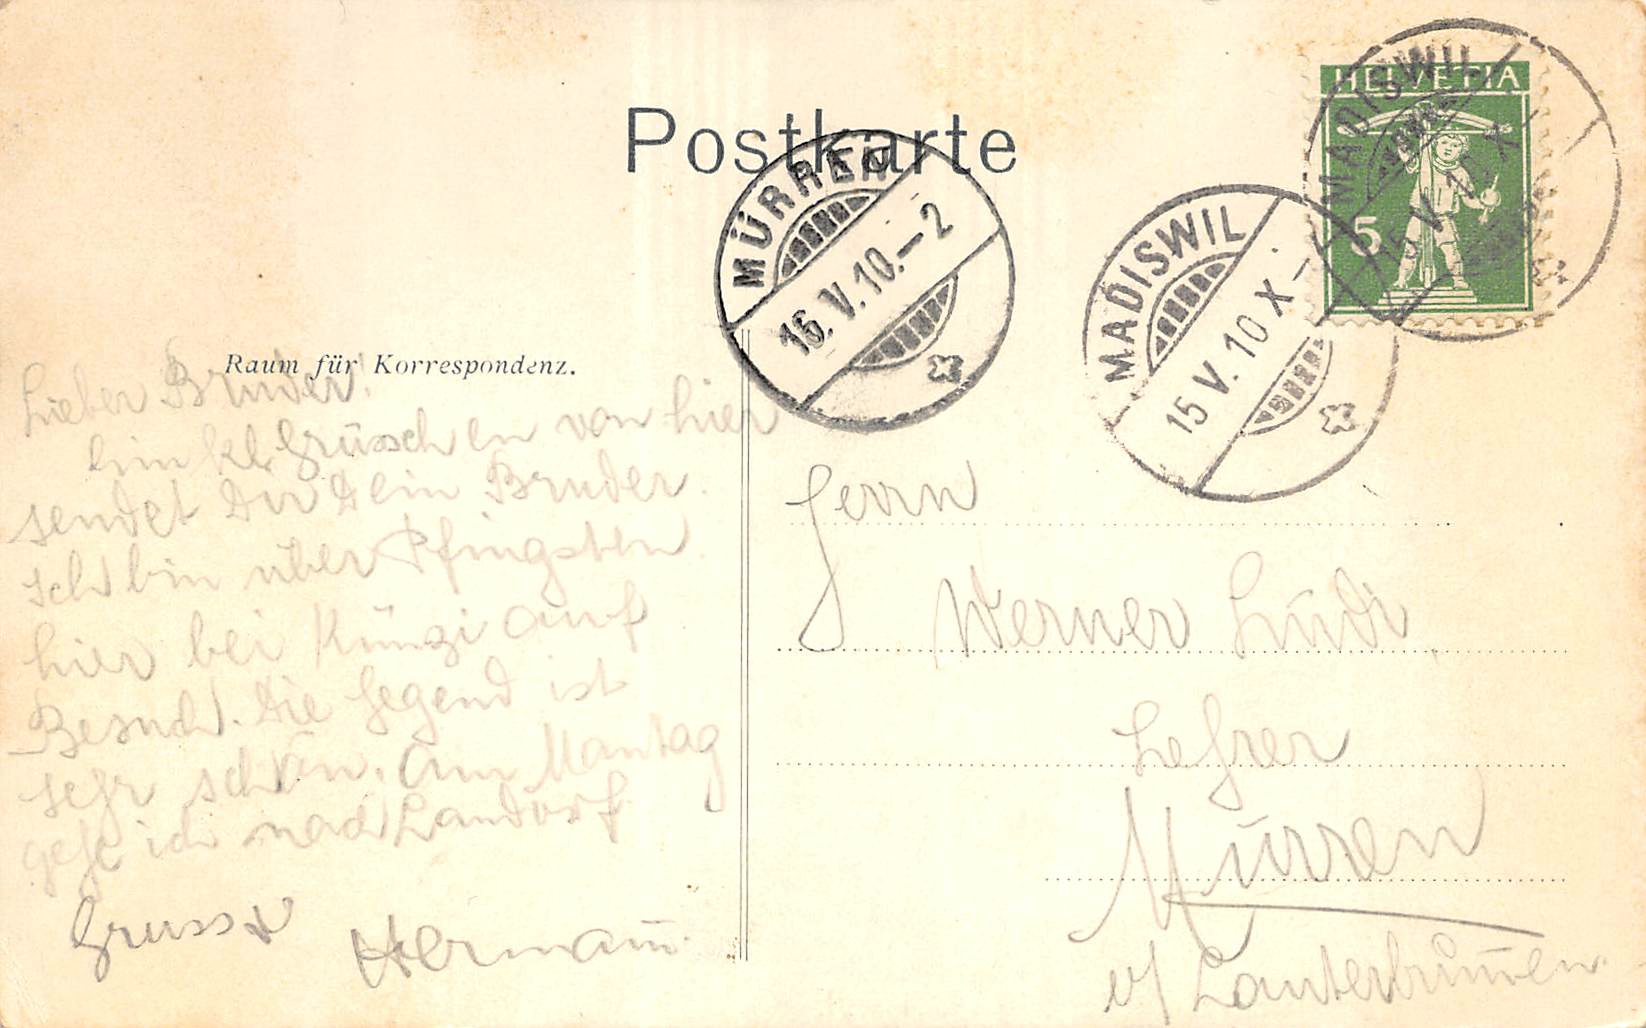 Postkarte
HELVETIA
5
MADISWIL
15 V. 10 X
MADISWIL
15 V. 10 X-
MÜRREN
16. V. 10.-2
Raum für Korrespondenz.
Lieber Bruder!
Ein kl. Grüsschen von hier
sendet Dir Dein Bruder.
Ich bin über Pfingsten
hier bei Künzi auf
Besuch. Die Gegend ist
sehr schön. Am Montag
gehe ich nach Landorf
Gruss
Hermann.
Herrn
Werner Lüdi,
Lehrer
Mürren
o/ Lauterbrunnen.